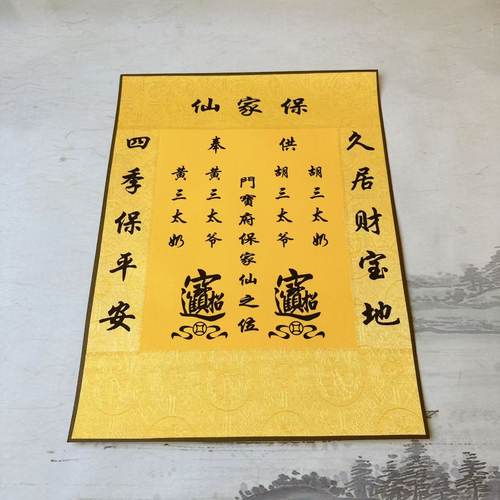 保家仙
久居财宝地
供奉
胡三太奶
胡三太爷
門寶府保家仙之位
黄三太爷
黄三太奶
招財進寶
招財進寶
四季保平安